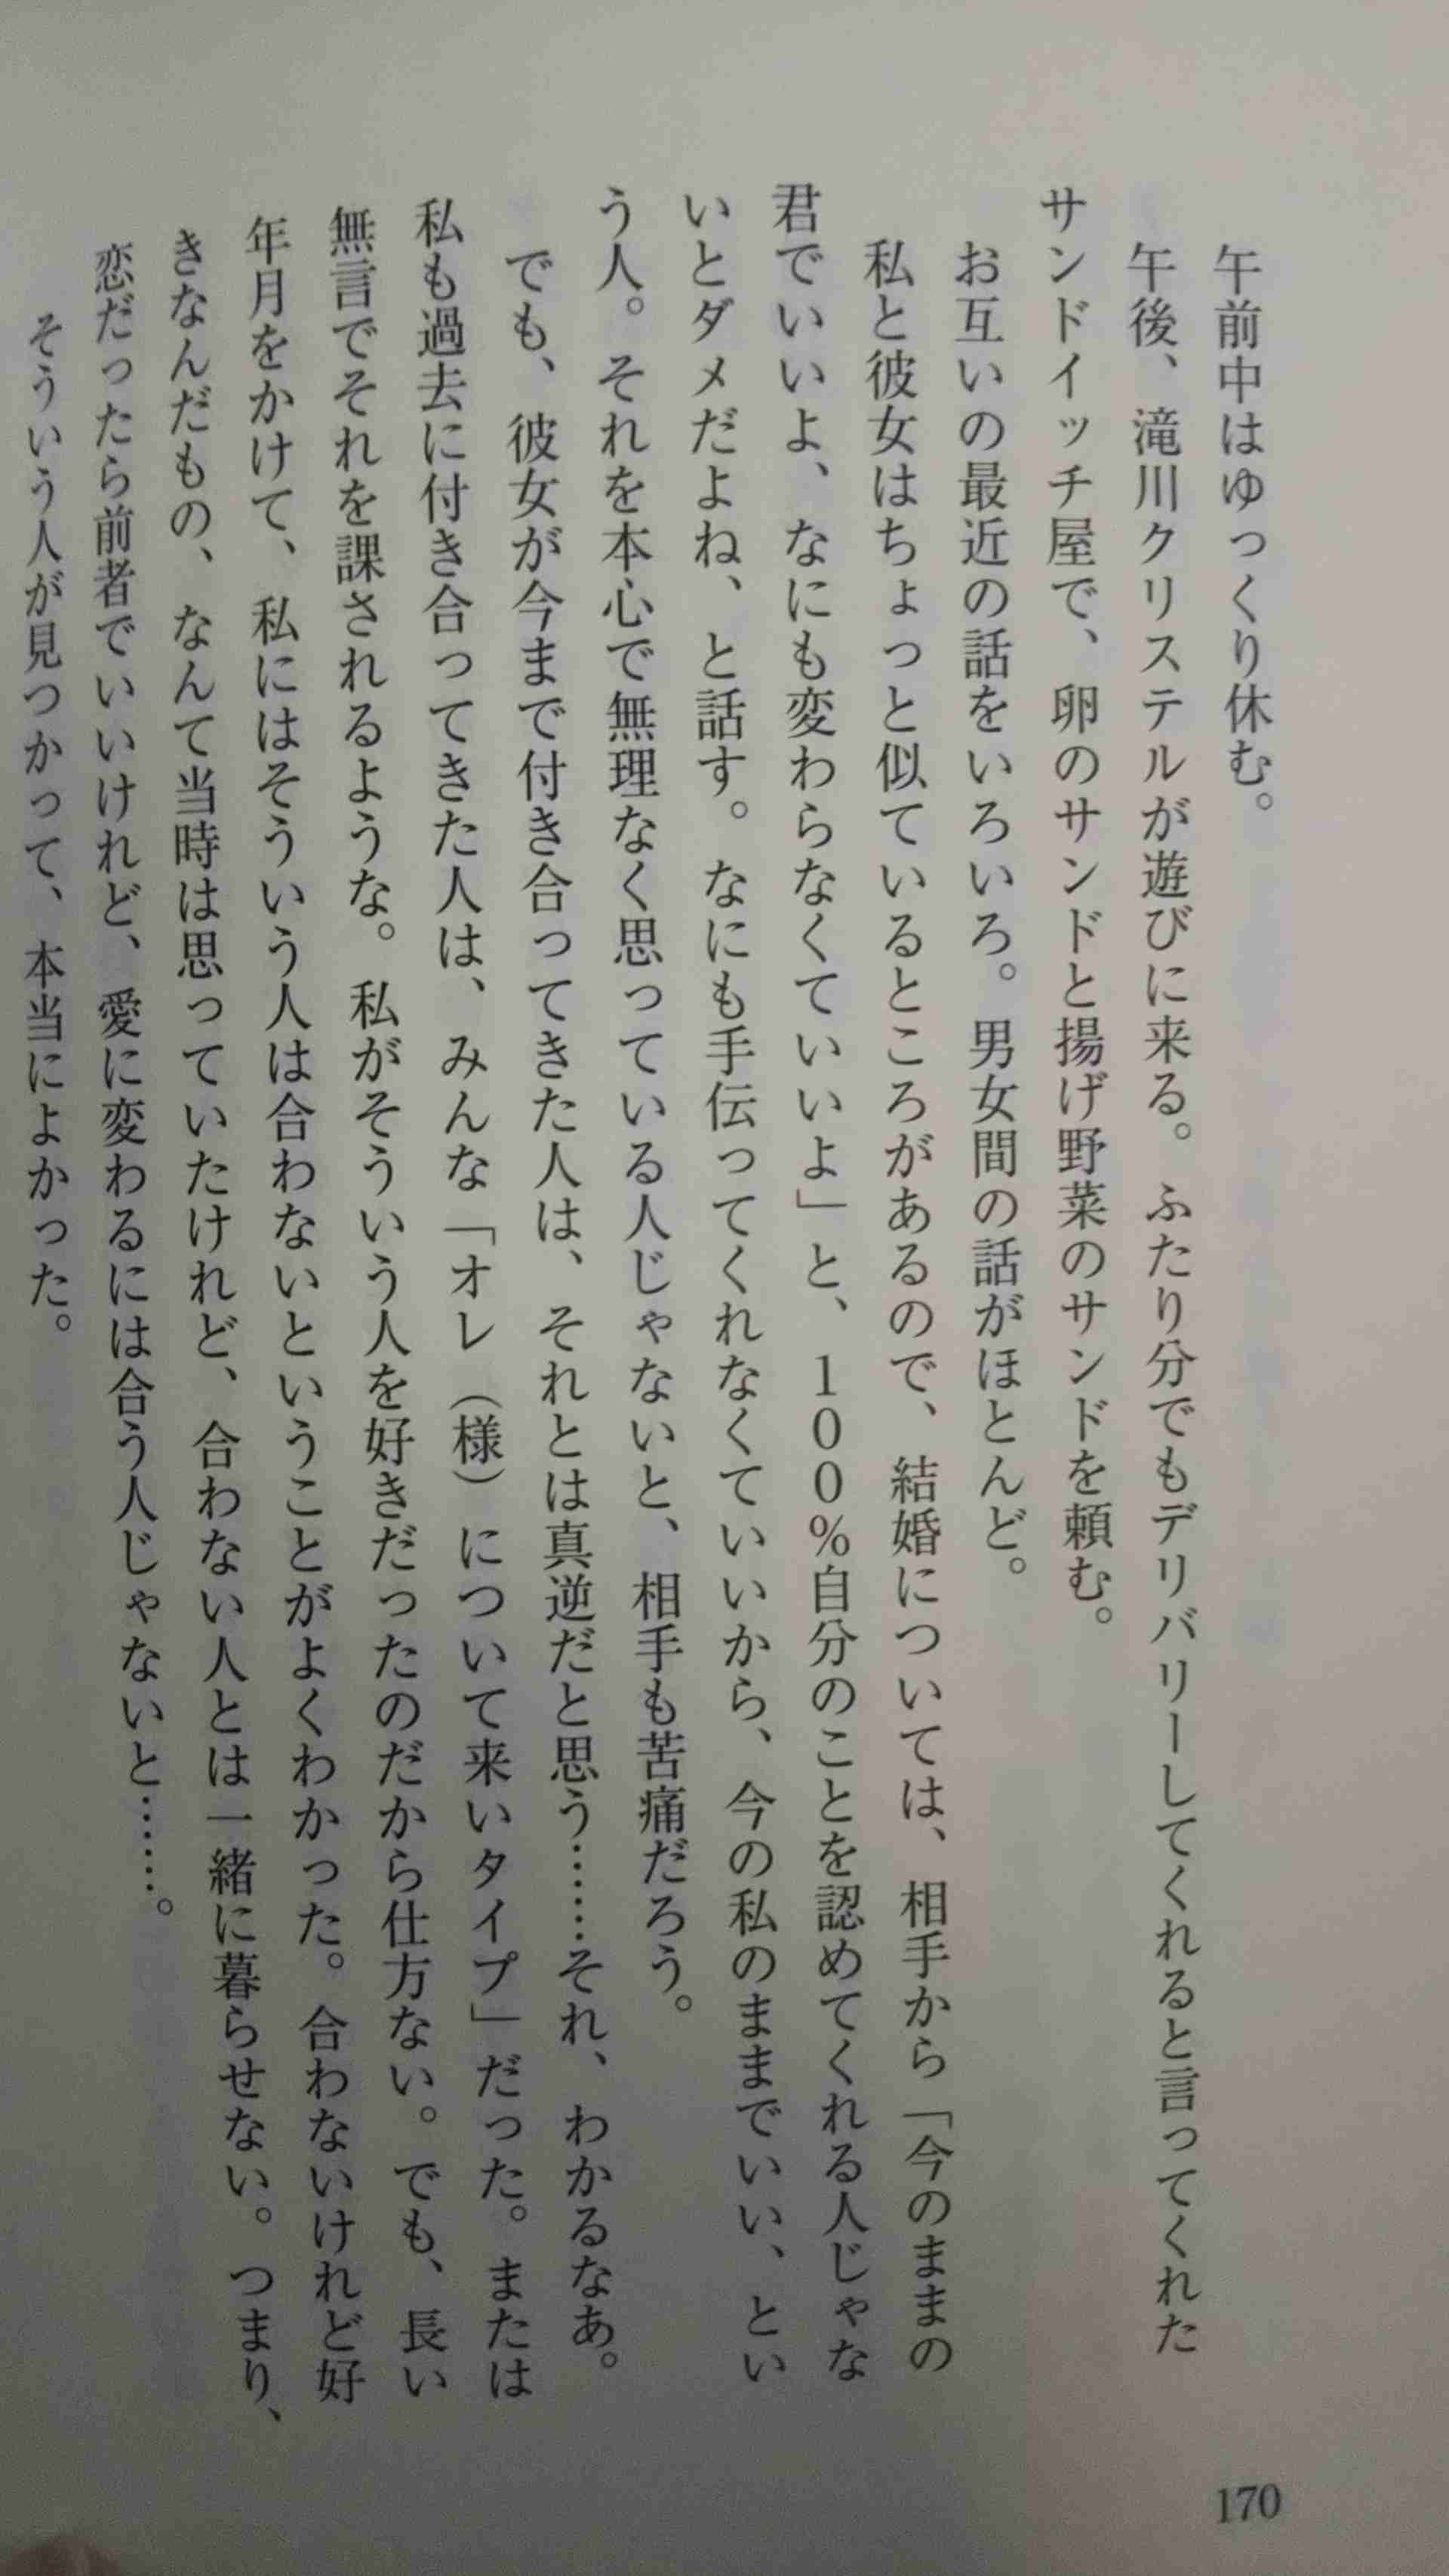 午前中はゆっくり休む。
午後、滝川クリステルが遊びに来る。ふたり分でもデリバリーしてくれると言ってくれた
サンドイッチ屋で、卵のサンドと揚げ野菜のサンドを頼む。
お互いの最近の話をいろいろ。男女間の話がほとんど。
私と彼女はちょっと似ているところがあるので、結婚については、相手から「今のままの
君でいいよ、なにも変わらなくていいよ」と、100%自分のことを認めてくれる人じゃな
いとダメだよね、と話す。なにも手伝ってくれなくていいから、今の私のままでいい、とい
う人。それを本心で無理なく思っている人じゃないと、相手も苦痛だろう。
でも、彼女が今まで付き合ってきた人は、それとは真逆だと思う……それ、わかるなあ。
私も過去に付き合ってきた人は、みんな「オレ（様）について来いタイプ」だった。または
無言でそれを課されるような。私がそういう人を好きだったのだから仕方ない。でも、長い
年月をかけて、私にはそういう人は合わないということがよくわかった。合わないけれど好
きなんだもの、なんて当時は思っていたけれど、合わない人とは一緒に暮らせない。つまり、
恋だったら前者でいいけれど、愛に変わるには合う人じゃないと……。
そういう人が見つかって、本当によかった。
170